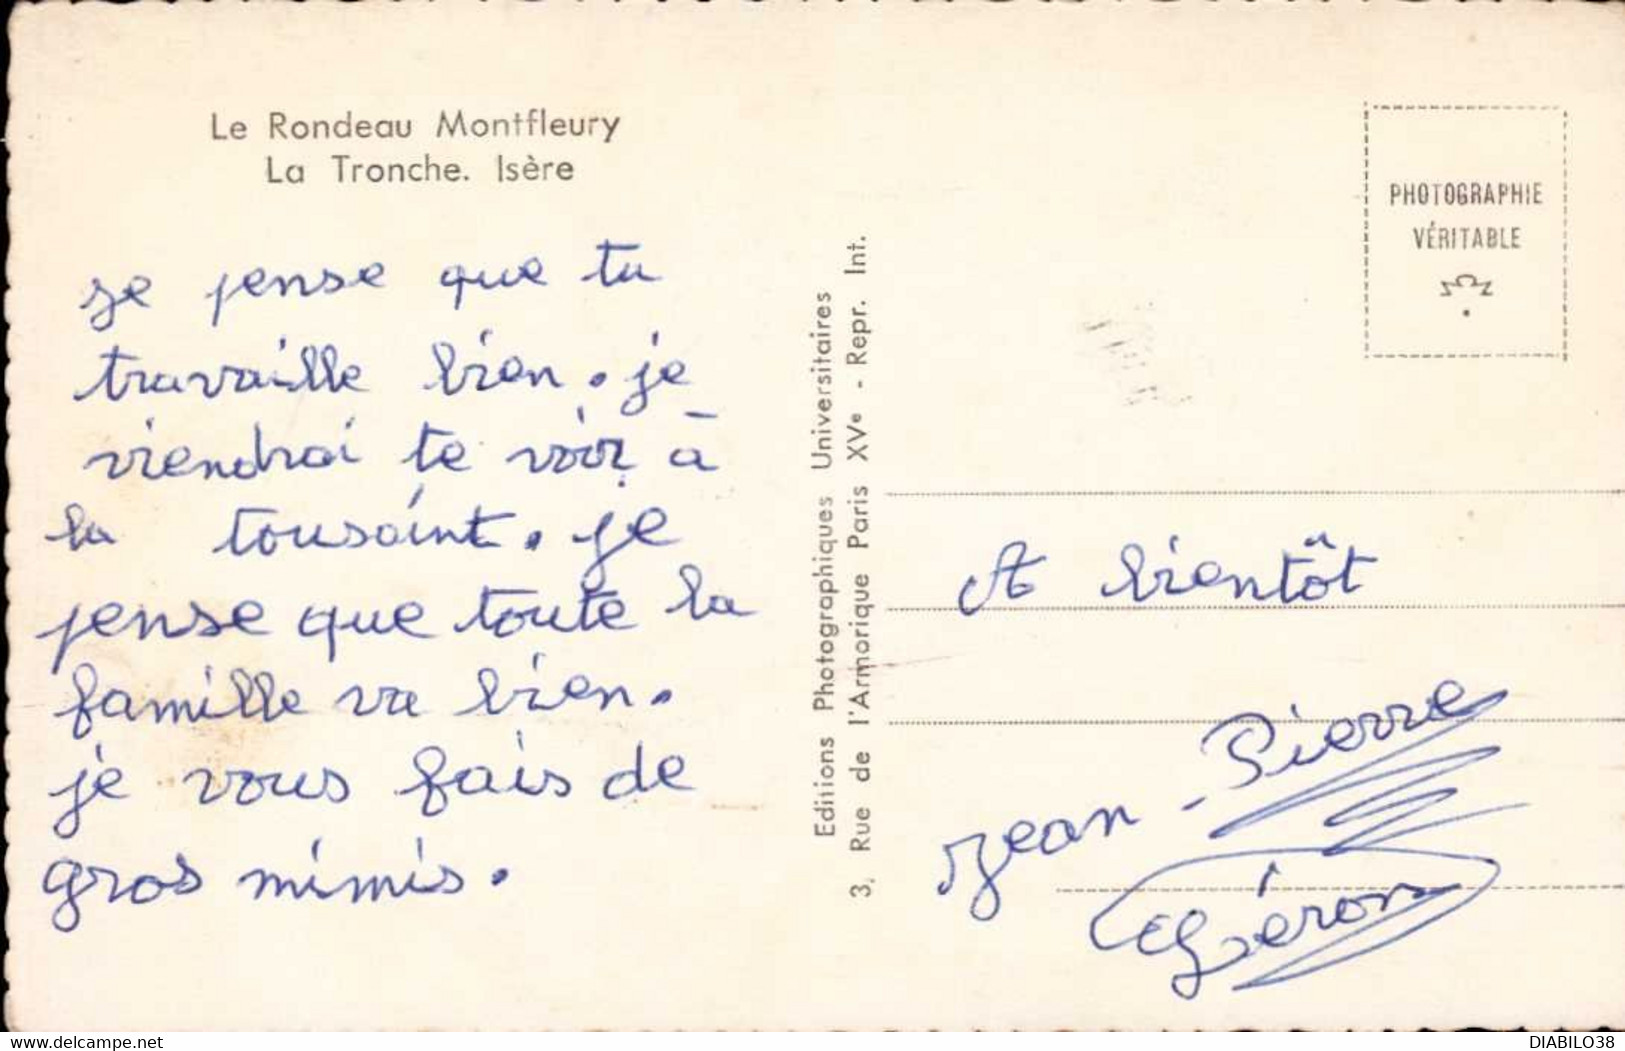 Le Rondeau Montfleury
La Tronche. Isère
je pense que tu
travaille bien. je
viendrai te voir à
la tousaint. je
pense que toute la
famille va bien.
je vous fais de
gros mimis.
Editions Photographiques Universitaires
3, Rue de l'Armorique Paris XVe - Repr. Int.
PHOTOGRAPHIE
VÉRITABLE
A bientôt
Jean-Pierre
Géron
delcampe.net
DIABILO38